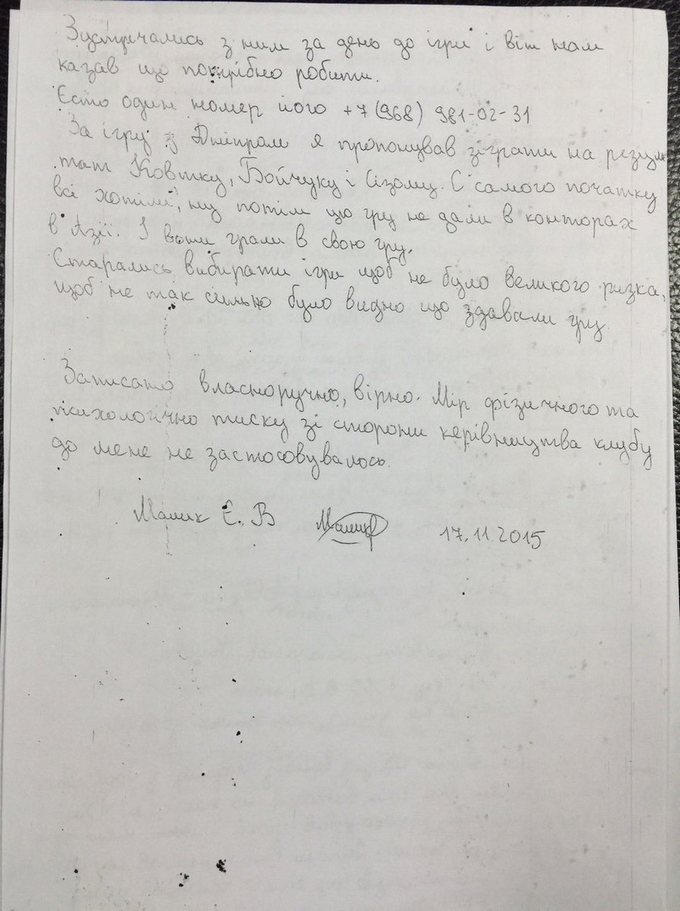 Зустрічались з ним за день до ігри і він нам
казав що потрібно робити.
Єсть один номер його +7(968) 981-02-31
За ігру з Дніпром я пропонував зіграти на резуль
тат Ковтку, Бойчуку і Сізому. С самого початку
всі хотіли, ну потім що гру не дали в конторах
в Азії. І вони грали в свою гру.
Старались вибирати ігри щоб не було великого ризка,
щоб не так сильно було видно що здавали гру
Записано власноручно, вірно. Мір фізичного та
психологічно тиску зі сторони керівництва клубу
до мене не застосовувалось.
Малик Є. В Малик 17.11.2015